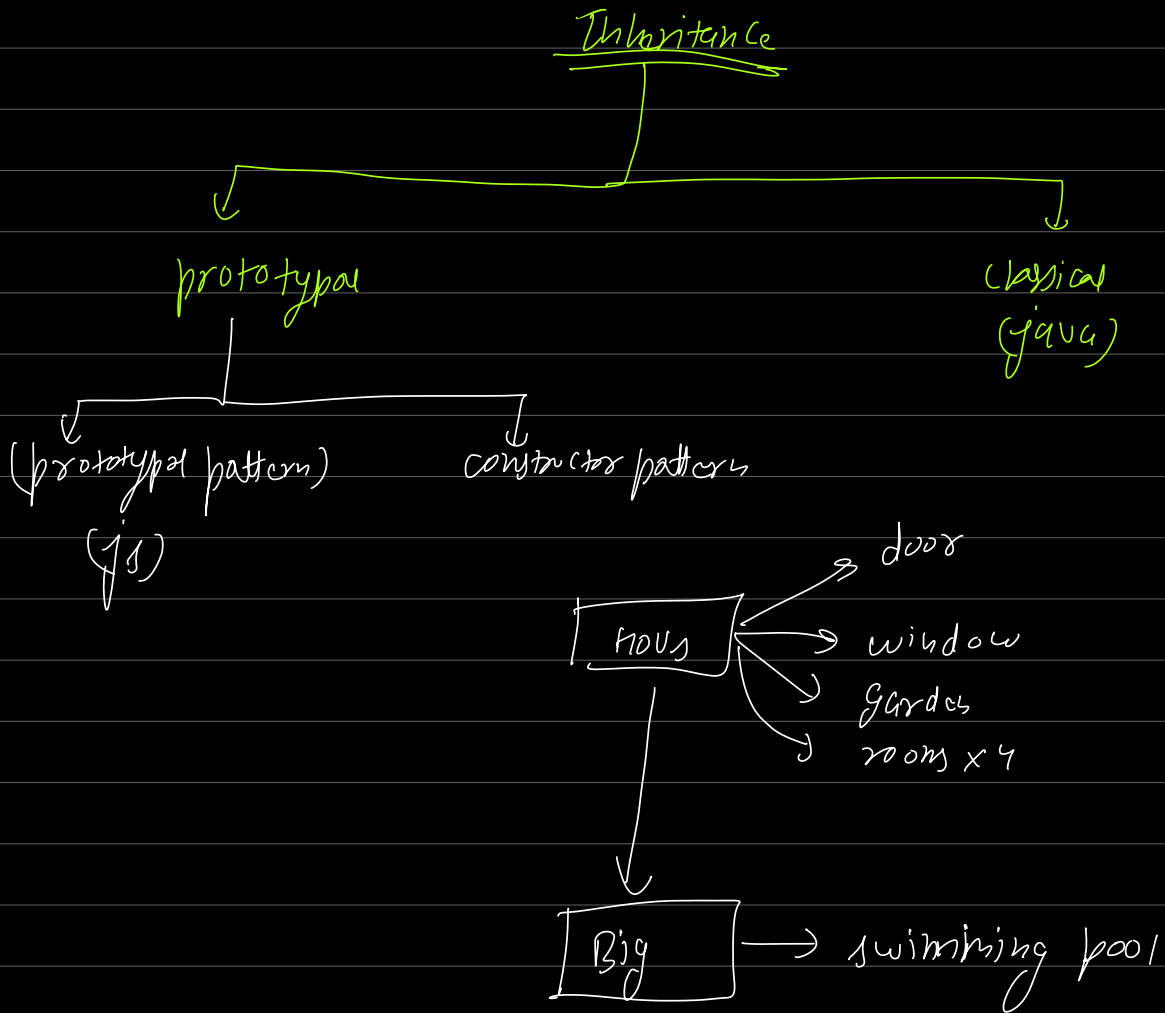 Inheritance
prototypal
classical
(java)
(prototypal pattern)
constructor pattern
(js)
door
Hous
window
garden
rooms x 4
Big
swimming pool